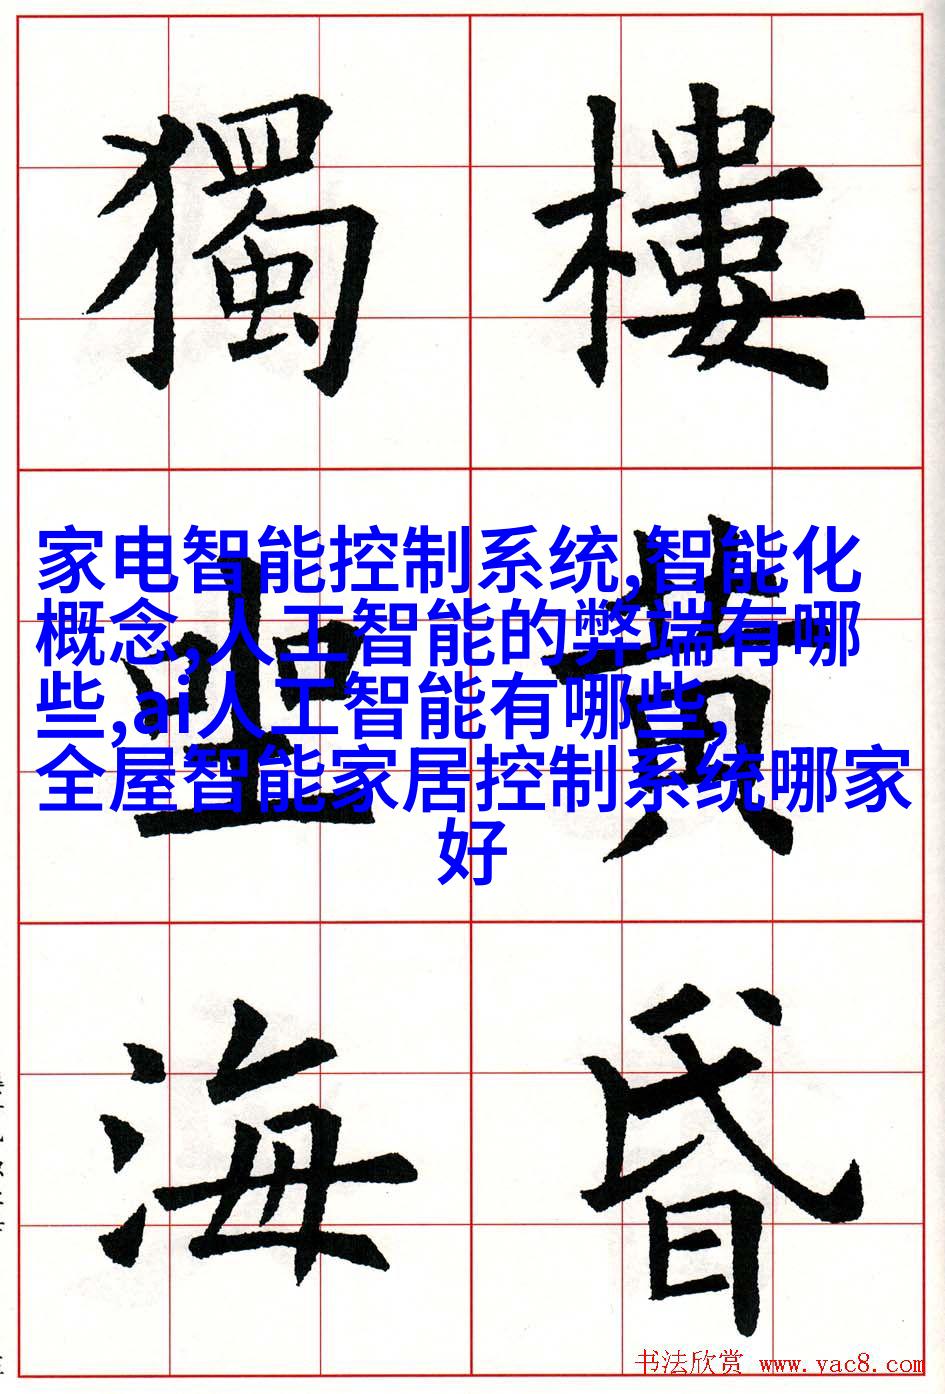 樓 獨
黄 坐
昏 海
家电智能控制系统,智能化
概念,人工智能的弊端有哪
些,ai人工智能有哪些,
全屋智能家居控制系统哪家
好
书法欣赏 www.yac8.com